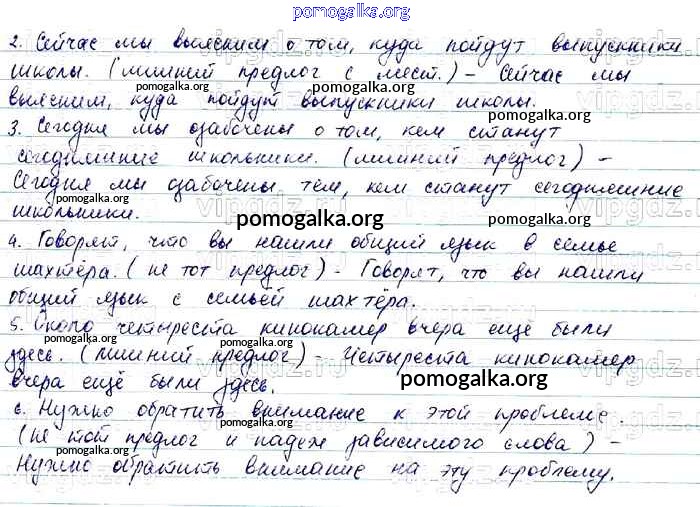 pomogalka.org
2. Сейчас мы выясним о том, куда пойдут выпускники
школы. (лишний предлог с мест.) – Сейчас мы
выясним, куда пойдут выпускники школы.
3. Сегодня мы озабочены о том, кем станут
сегодняшние школьники. (лишний предлог) –
Сегодня мы озабочены тем, кем станут сегодняшние
школьники.
pomogalka.org
4. Говорят, что вы нашли общий язык в семье
шахтёра. (не тот предлог) – Говорят, что вы нашли
общий язык с семьёй шахтёра.
5. Около четыреста кинокамер вчера ещё были
здесь. (лишний предлог) – Четыреста кинокамер
вчера ещё были здесь.
pomogalka.org
6. Нужно обратить внимание к этой проблеме.
(не тот предлог и падеж зависимого слова) –
Нужно обратить внимание на эту проблему.